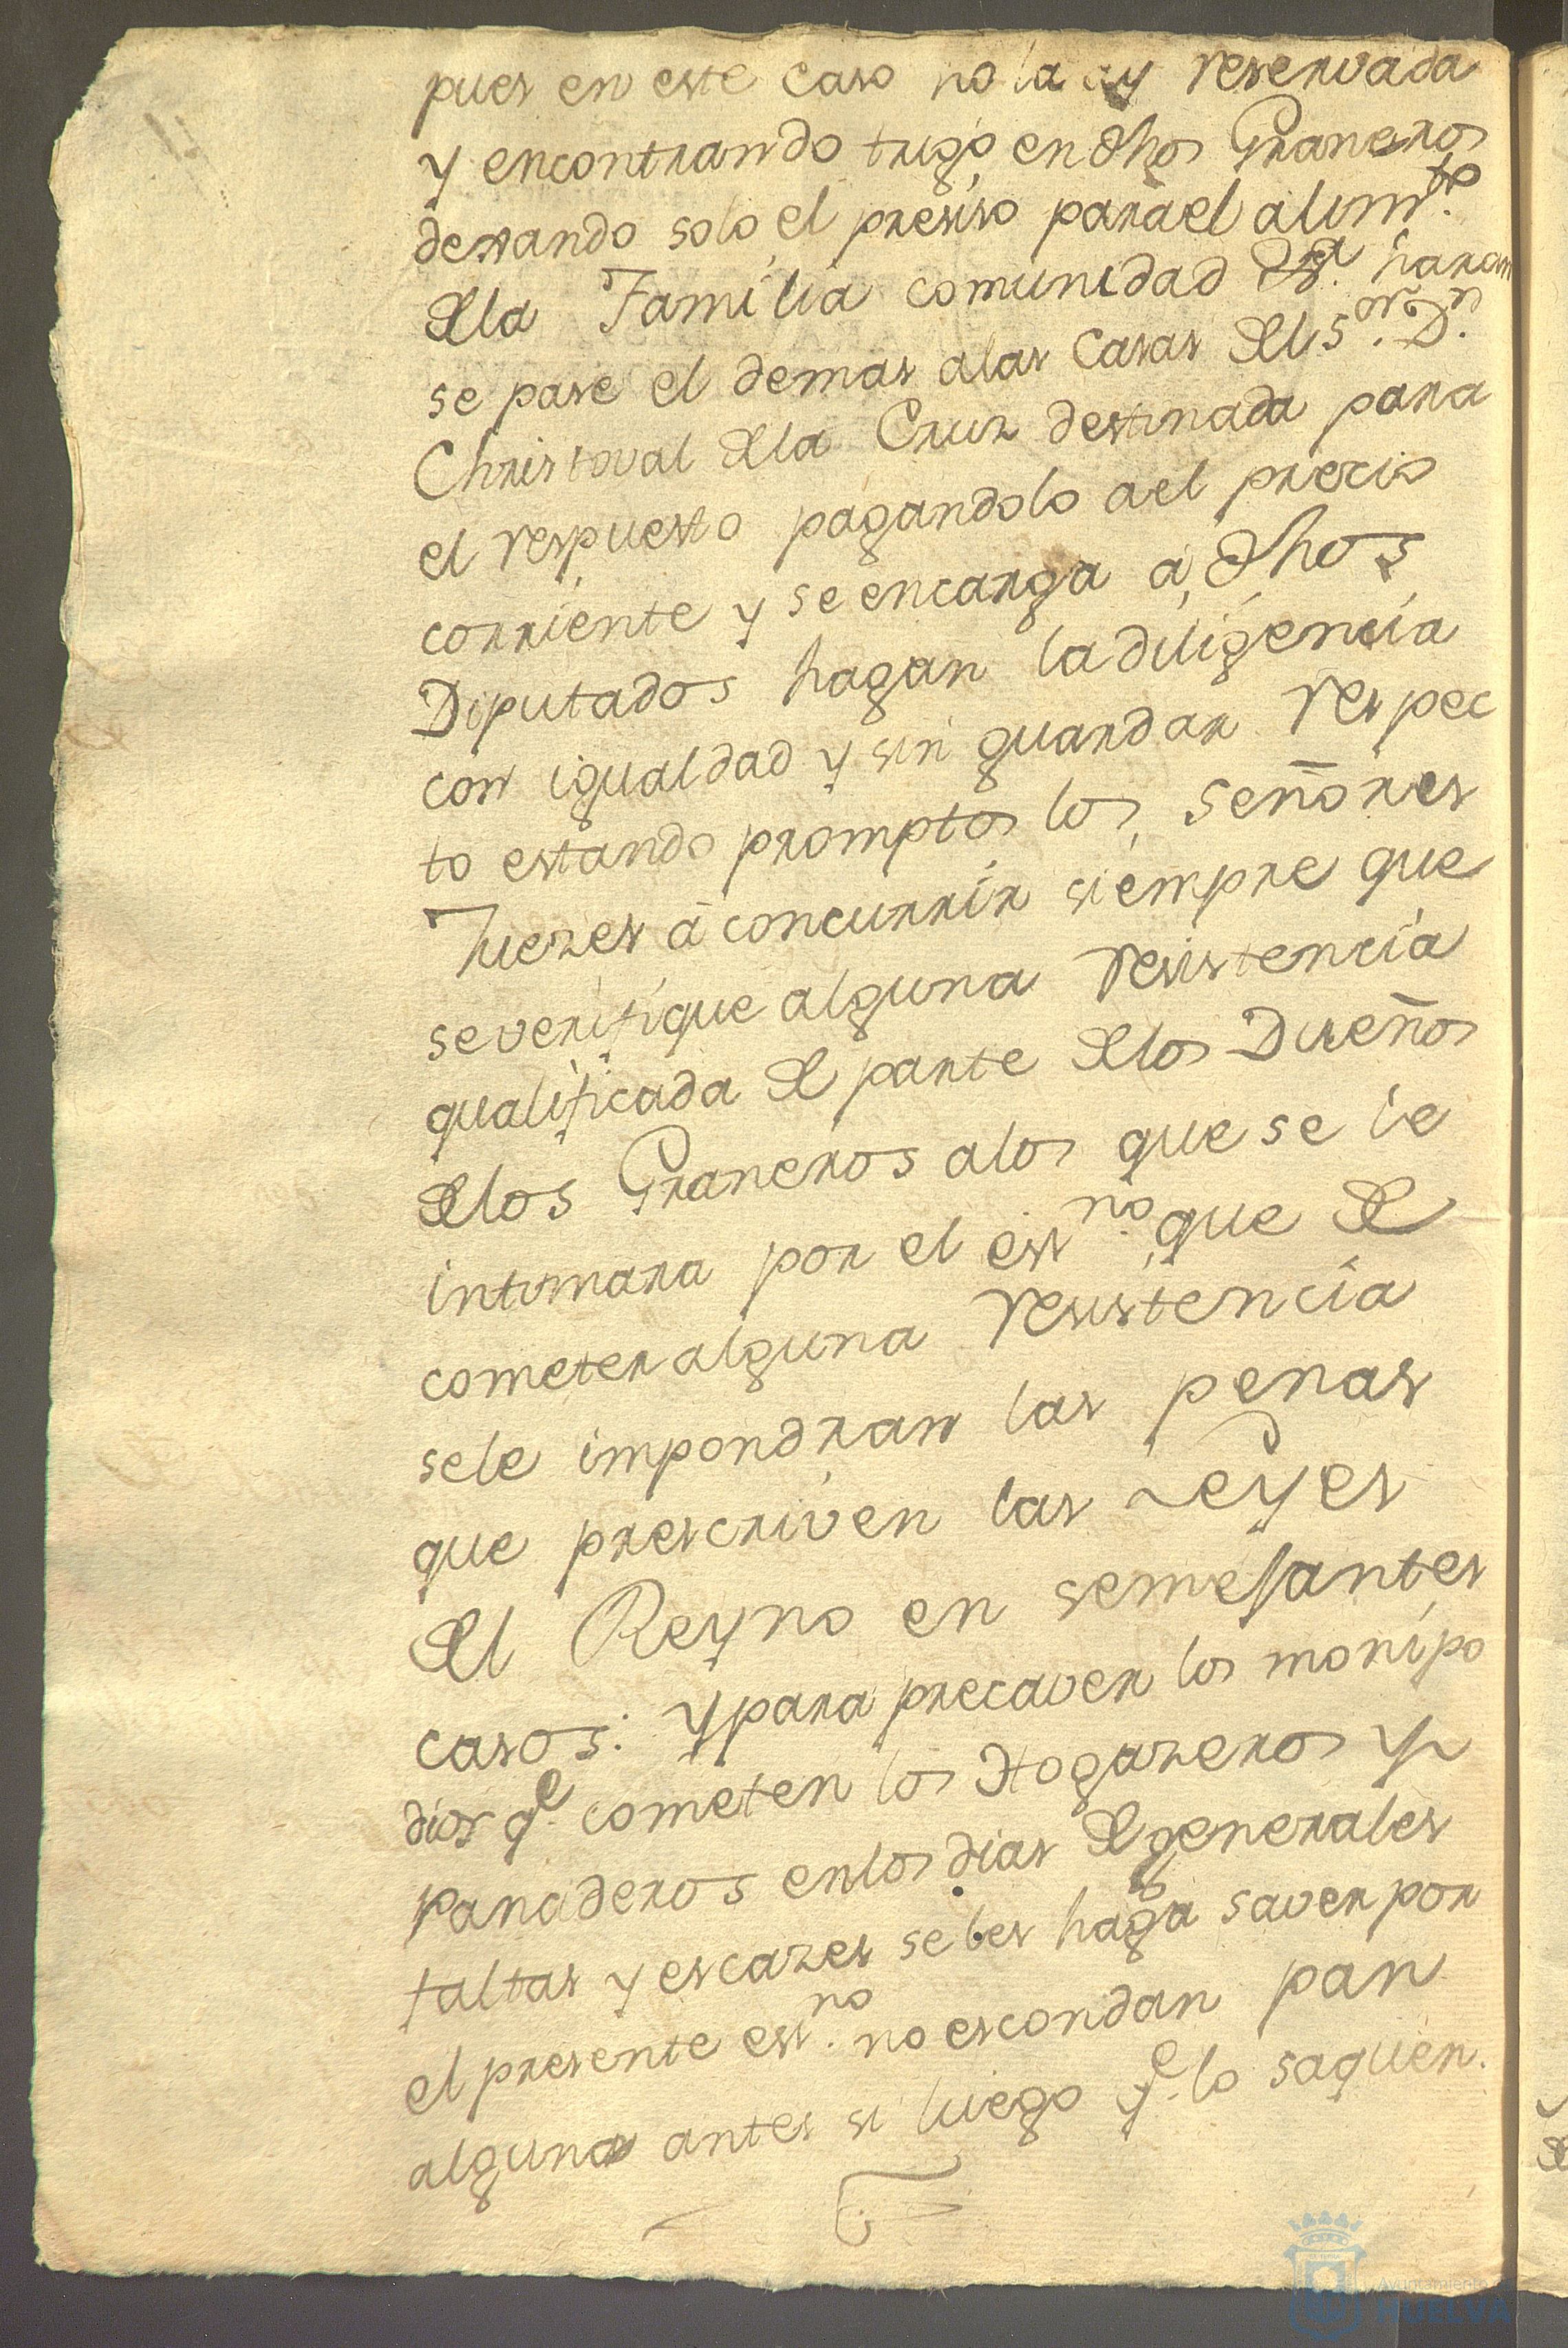 pues en este caso no la ay reservada
y encontrando trigo en dhos Graneros
dexando solo el presiso para el alimto.
dela Familia comunidad &a. haran
se pase el demas alas Casas del Sor. Dn.
Christoval dela Cruz destinada para
el respuesto pagandolo ael precio
corriente y se encarga á dhos
Diputados hagan la diligencia
con igualdad y sin guardar respec
to estando promptos los Señores
Juezes á concurrir siempre que
se verifique alguna resistencia
qualificada de parte delos Dueños
delos Graneros alos que se le
intimara por el essno. que de
cometer alguna resistencia
sele impondran las penas
que prescriven las Leyes
del Reyno en semejantes
casos: y para precaver los monipo
dios qe. cometen los Hogazeros y
Panaderos enlos dias de generales
faltas y escazes se les haga saver por
el presente essno. no escondan pan
alguno antes si luego qe. lo saquen.
Ayuntamiento
HUELVA